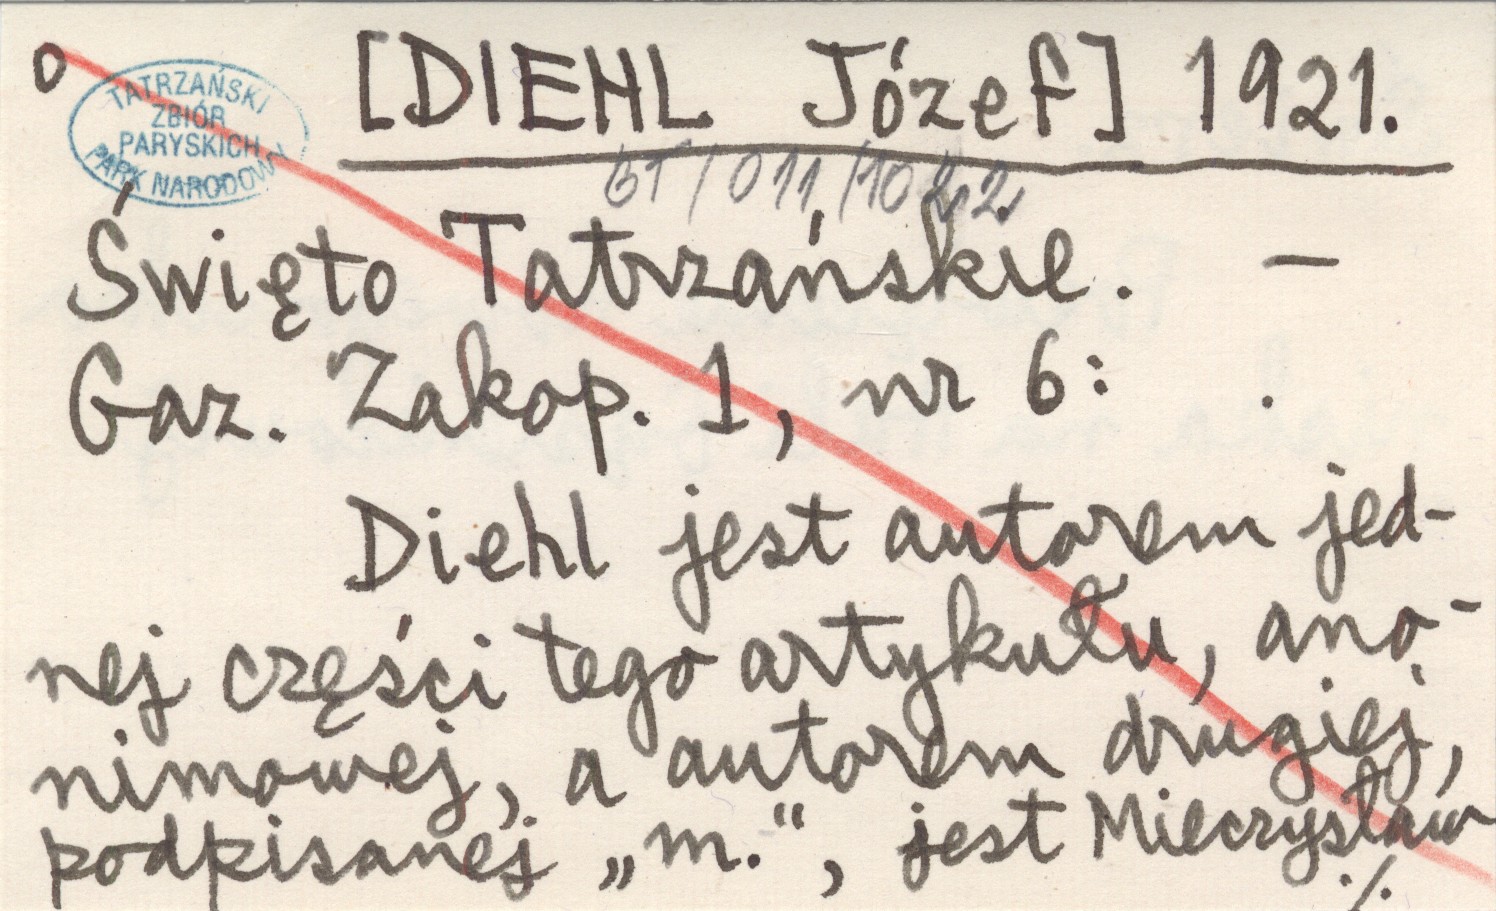 o [DIEHL Józef] 1921.
TATRZAŃSKI
ZBIÓR
PARYSKICH
PARK NARODOWY
GT/011/1022
Święto Tatrzańskie. —
Gaz. Zakop. 1, nr 6: .
Diehl jest autorem jed-
nej części tego artykułu, ano-
nimowej, a autorem drugiej,
podpisanej „m.“, jest Mieczysław
./.